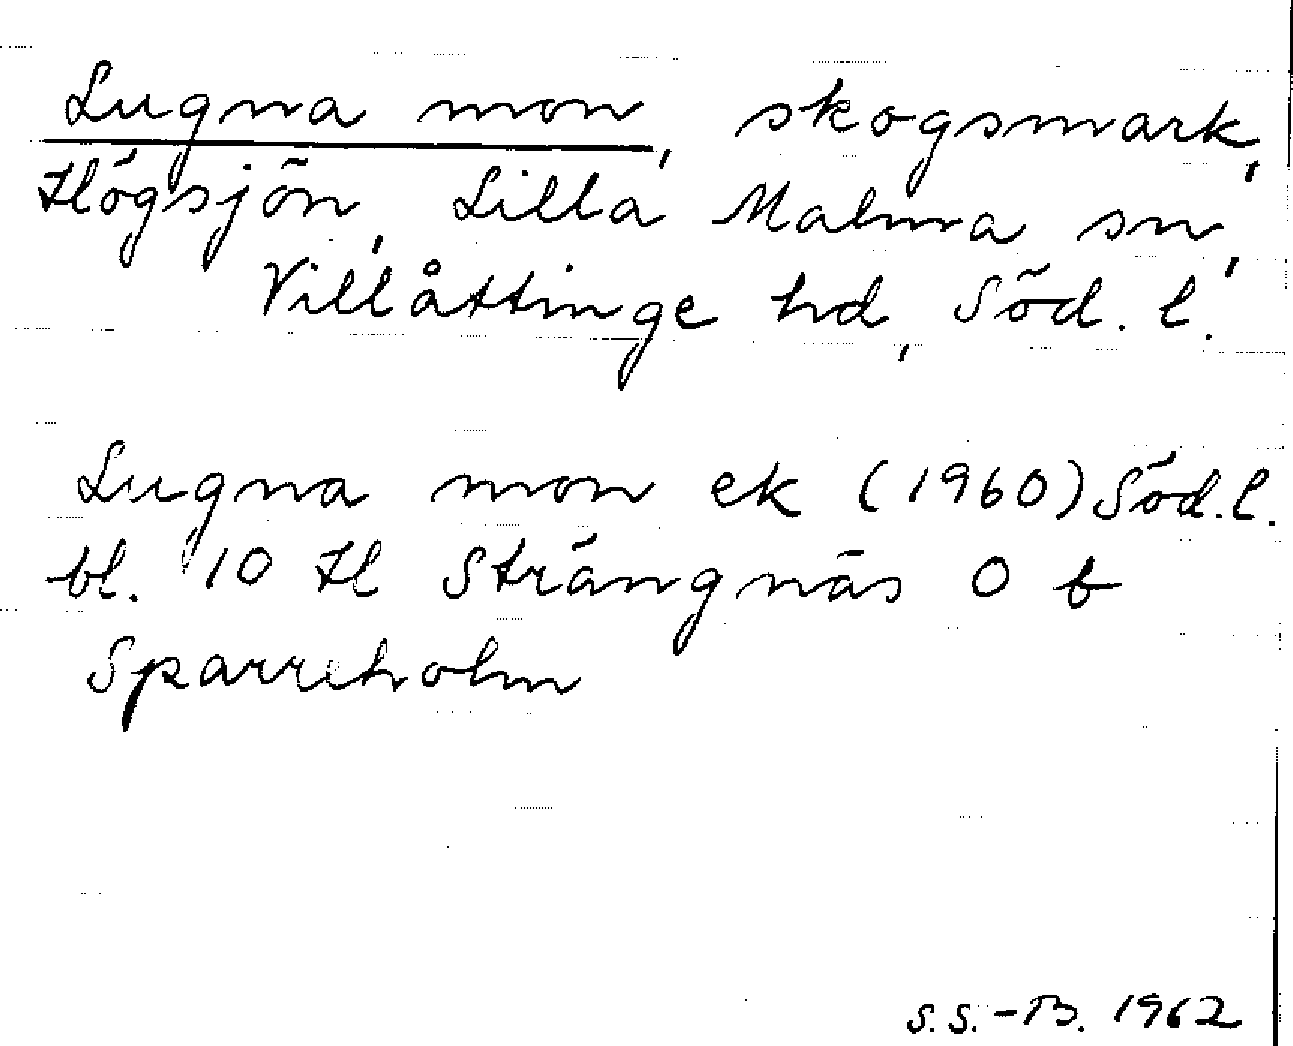 Lugna mon, skogsmark,
Högsjön, Lilla Malma sn,
Villåttinge hd, Söd. l.
Lugna mon ek (1960) Söd. l.
bl. 10 H Strängnäs O b
Sparreholm
S.S.-B. 1962